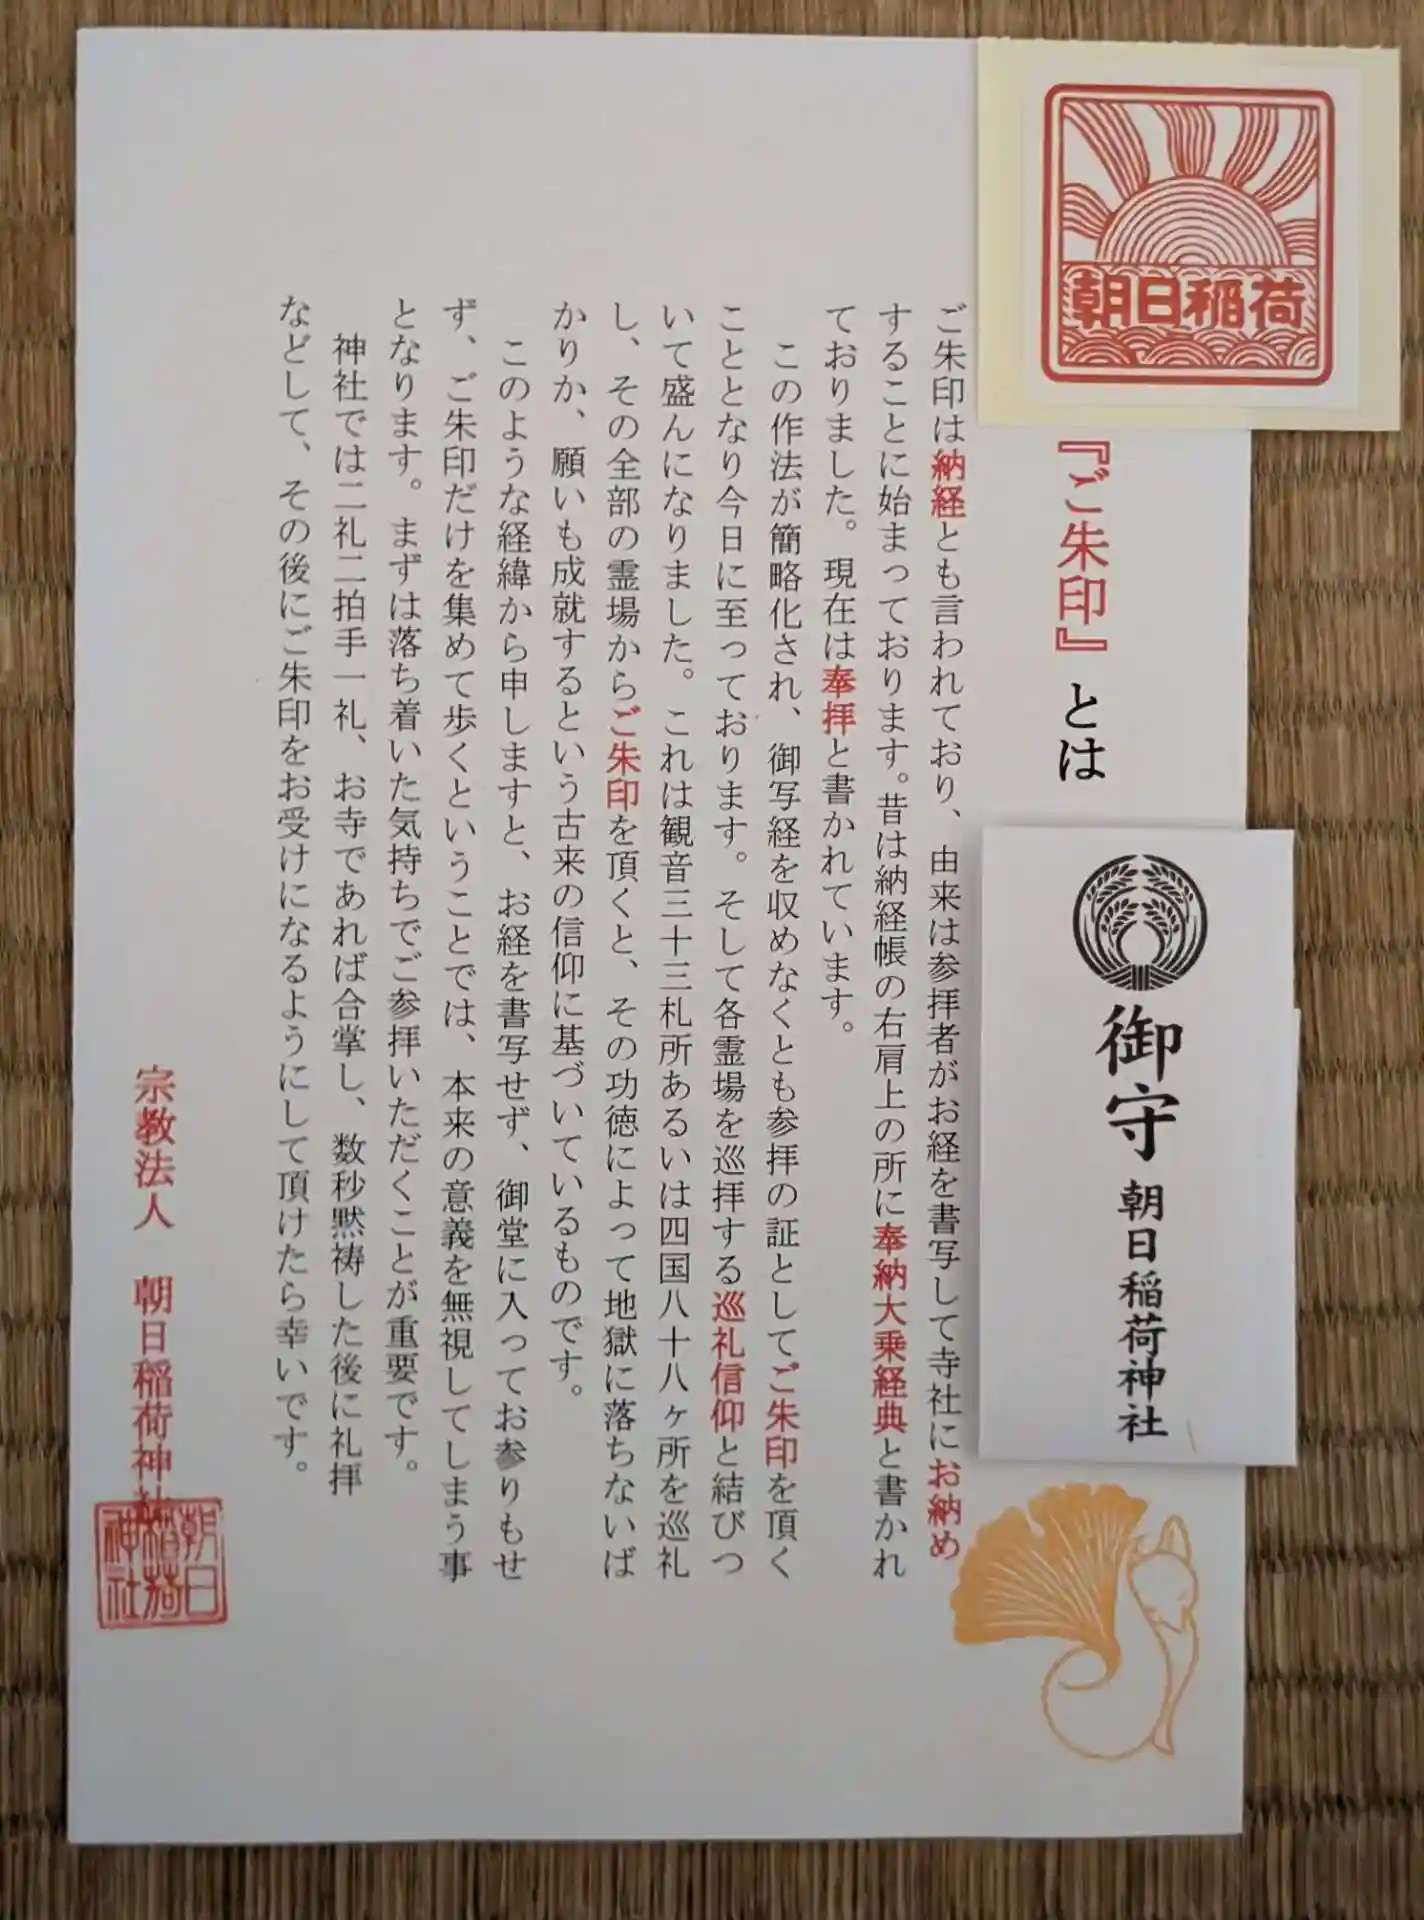 朝日稲荷
『ご朱印』とは
御守 朝日稲荷神社
ご朱印は納経とも言われており、由来は参拝者がお経を書写して寺社にお納め
することに始まっております。昔は納経帳の右肩上の所に奉納大乗経典と書かれ
ておりました。現在は奉拝と書かれています。
この作法が簡略化され、御写経を収めなくとも参拝の証としてご朱印を頂く
こととなり今日に至っております。そして各霊場を巡拝する巡礼信仰と結びつ
いて盛んになりました。これは観音三十三札所あるいは四国八十八ヶ所を巡礼
し、その全部の霊場からご朱印を頂くと、その功徳によって地獄に落ちないば
かりか、願いも成就するという古来の信仰に基づいているものです。
このような経緯から申しますと、お経を書写せず、御堂に入ってお参りもせ
ず、ご朱印だけを集めて歩くということでは、本来の意義を無視してしまう事
となります。まずは落ち着いた気持ちでご参拝いただくことが重要です。
神社では二礼二拍手一礼、お寺であれば合掌し、数秒黙祷した後に礼拝
などして、その後にご朱印をお受けになるようにして頂けたら幸いです。
宗教法人 朝日稲荷神社
朝日
稲荷
神社